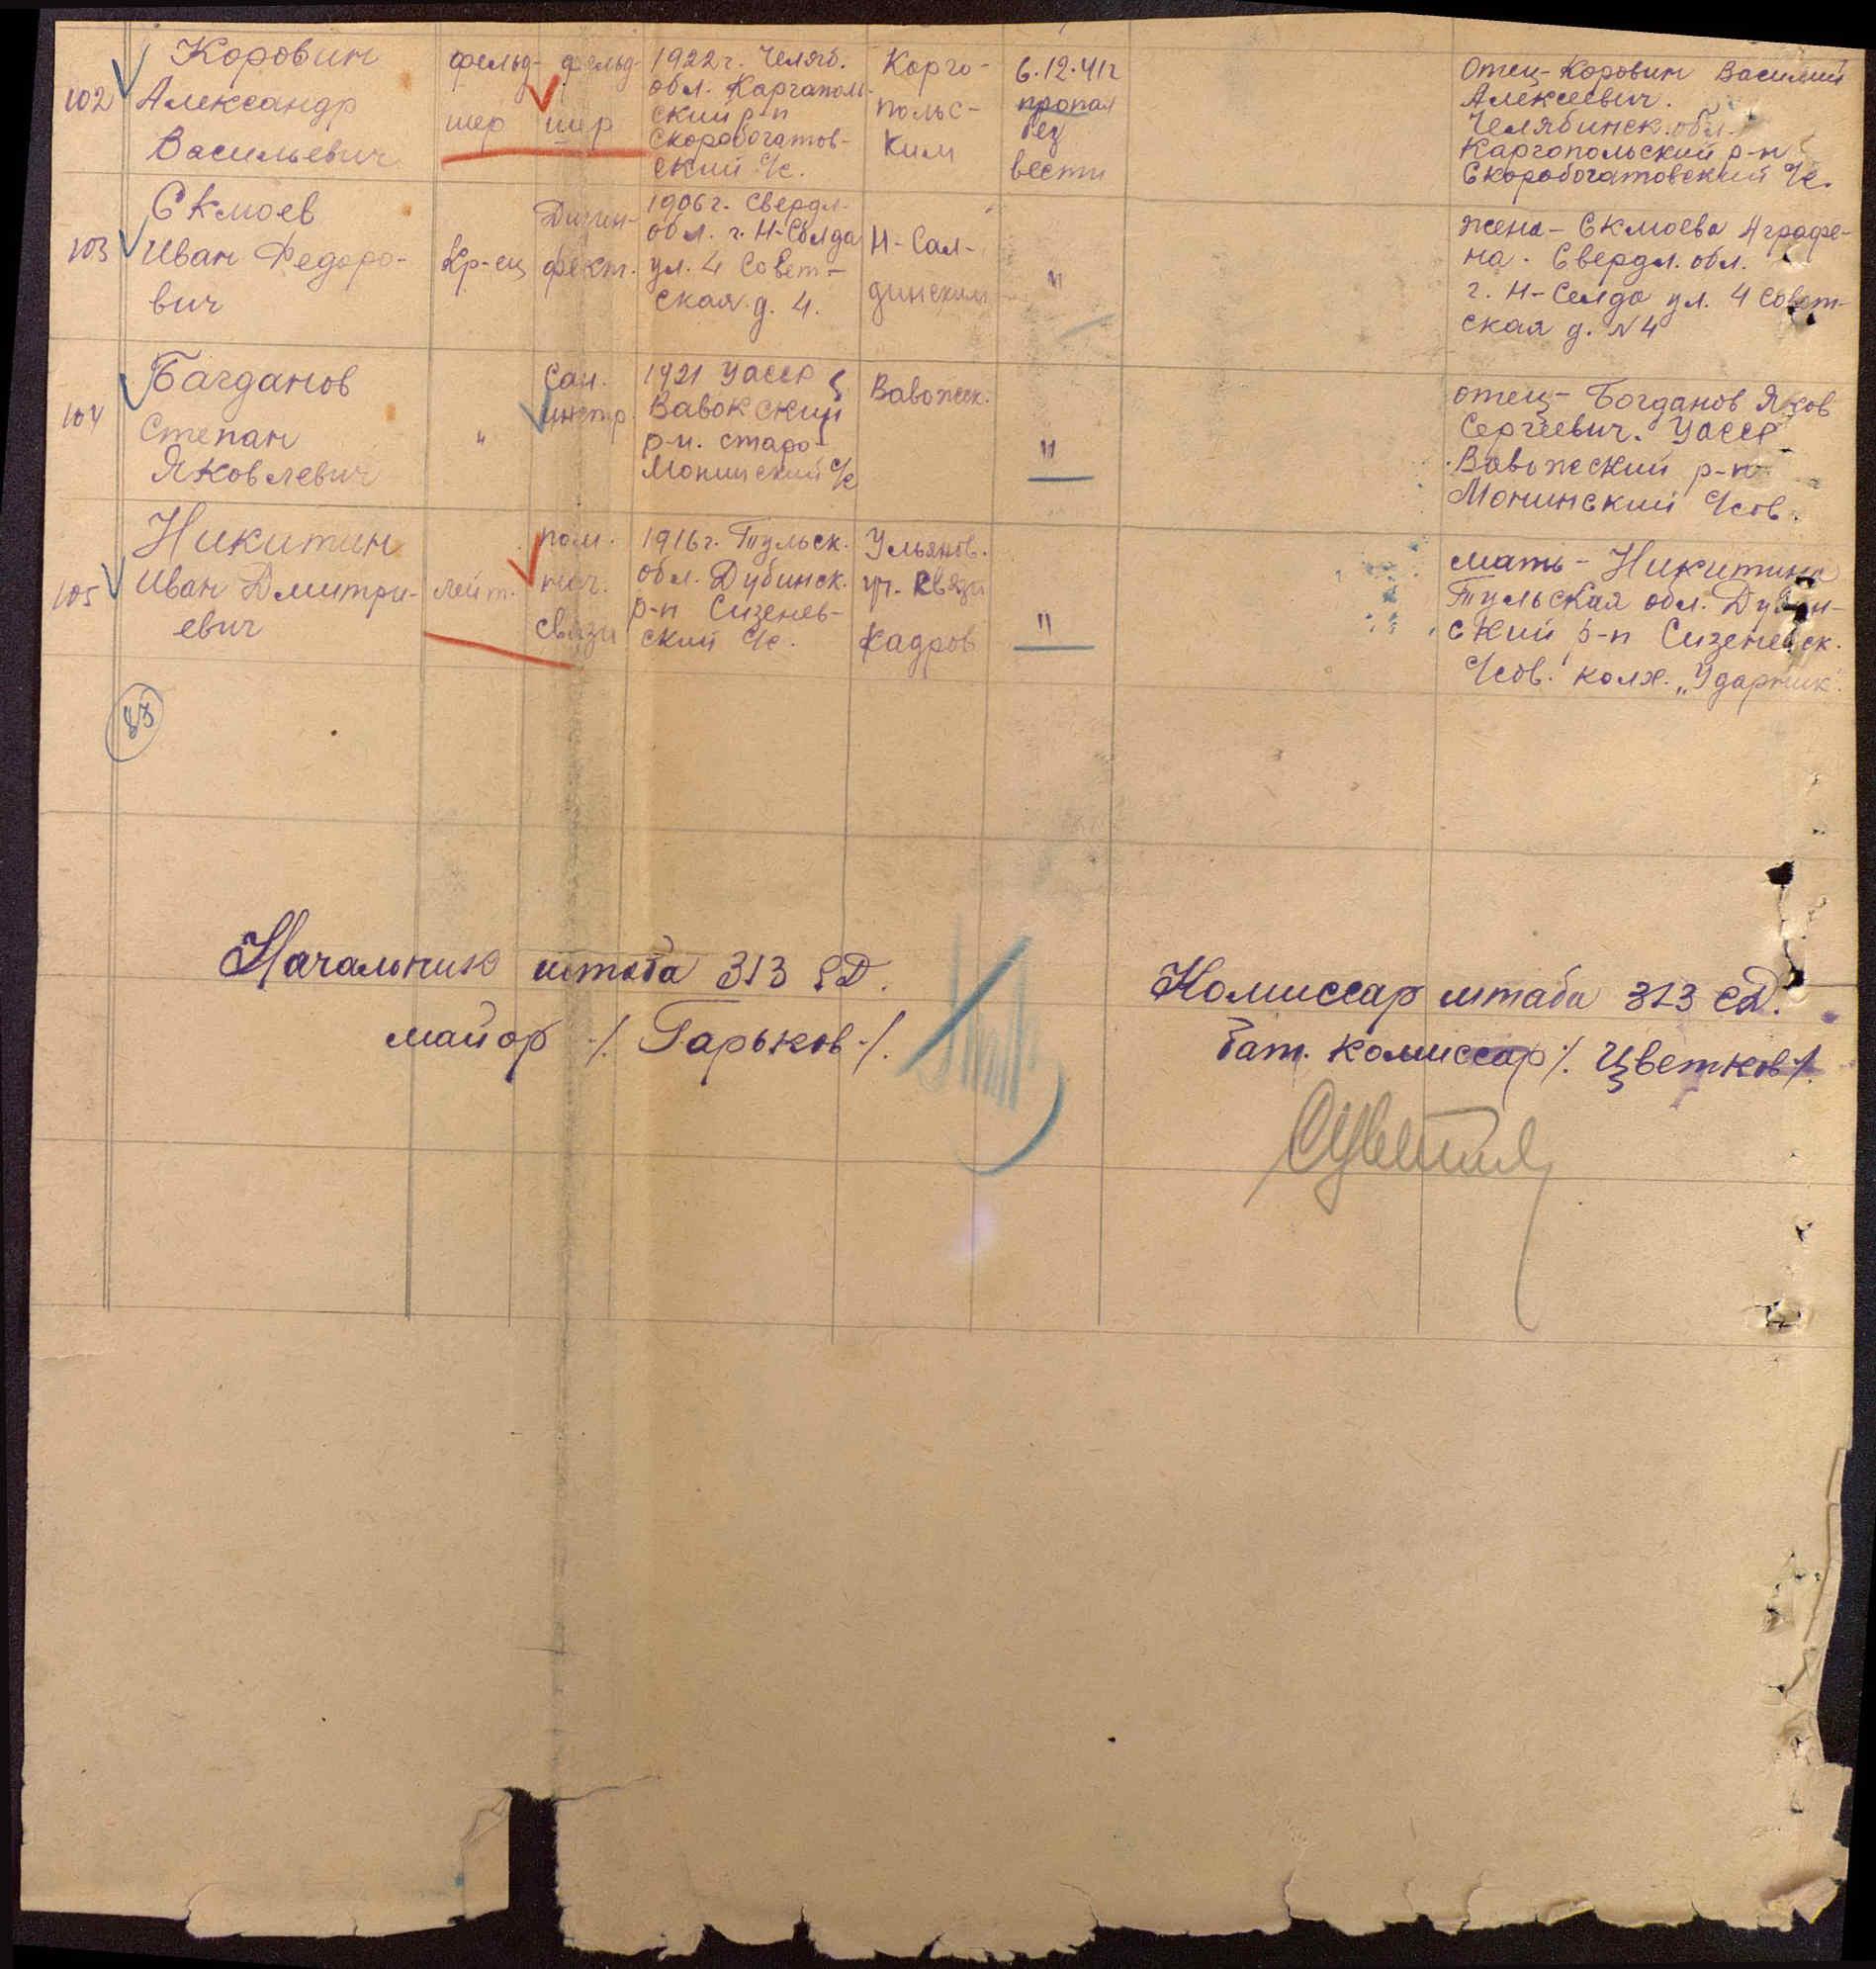 102
Коровин
Александр
Васильевич
фельд-
шер
фельд-
шер
1922г. Челяб.
обл. Каргаполь-
ский р-н
Скоробогатов-
ский с/с.
Карго-
польс-
ким
6.12.41г
пропал
без
вести
Отец-Коровин Василий
Алексеевич.
Челябинск. обл.
Каргопольский р-н
Скоробогатовский с/с.
103
Екмоев
Иван Федоро-
вич
Кр-ец
Дизин-
фект.
1906г. Свердл.
обл. г. Н-Солда
ул. 4 Совет-
ская д. 4.
Н-Сал-
динским
"
жена - Екмоева Аграфе-
на. Свердл. обл.
г. Н-Селда ул. 4 Совет-
ская д. №4
104
Багданов
Степан
Яковлевич
"
Сан.
инстр.
1921 УАССР
Вавокский
р-н. Старо
Монинский с/с
Вавожск.
"
отец- Богданов Яков
Сергеевич. УАССР
Вавожский р-н
Монинский с/сов.
105
Никитин
Иван Дмитри-
евич
лейт.
пом.
нач.
связи
1916г. Тульск.
обл. Дубинск.
р-н Сизенев-
ский с/с.
Ульянов.
уч. связи
кадров
"
мать - Никитина
Тульская обл. Дубин-
ский р-н Сизеневск.
с/сов. колх. „Ударник".
88
Начальник штаба 313 СД.
майор /. Гарьков /.
Комиссар штаба 313 СД.
Бат. комиссар /. Цветков /.